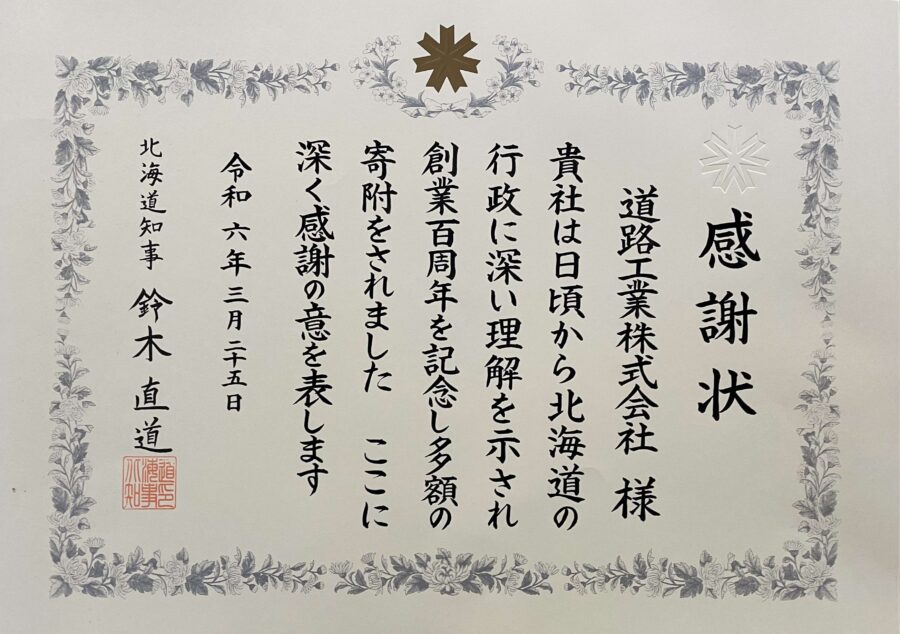 感謝状
道路工業株式会社 様
貴社は日頃から北海道の
行政に深い理解を示され
創業百周年を記念し多額の
寄附をされました ここに
深く感謝の意を表します
令和六年三月二十五日
北海道知事 鈴木直道
北海道知事印